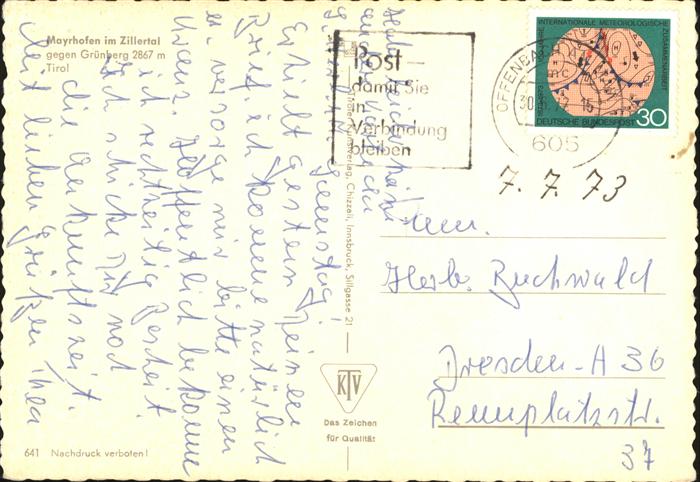 Mayrhofen im Zillertal
gegen Grünberg 2867 m
Tirol
Samstag!
Erhielt gestern Deinen
Brief, ich komme natürlich
u. versorge mir bitte einen
Kranz. Hoffentlich bekomme
ich rechtzeitig Bescheid
Ich schicke Dir noch
die Ankunftszeit.
Mit lieben Grüßen Ihea
Post
damit Sie
in
Verbindung
bleiben
OFFENBACH
605
INTERNATIONALE METEOROLOGISCHE ZUSAMMENARBEIT
1873/1973
DEUTSCHE BUNDESPOST 30
7.7.73
Fam.
Herb. Buchwald
Dresden-A 36
Remplatzstr.
37
Chizzali, Innsbruck, Sillgasse 21
KTV
Das Zeichen
für Qualität
641 Nachdruck verboten!